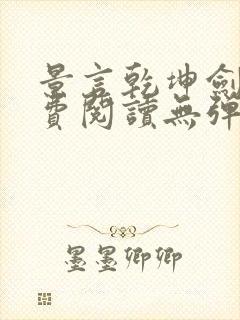 景言乾坤劍
費閱讀無彈
墨墨卿卿